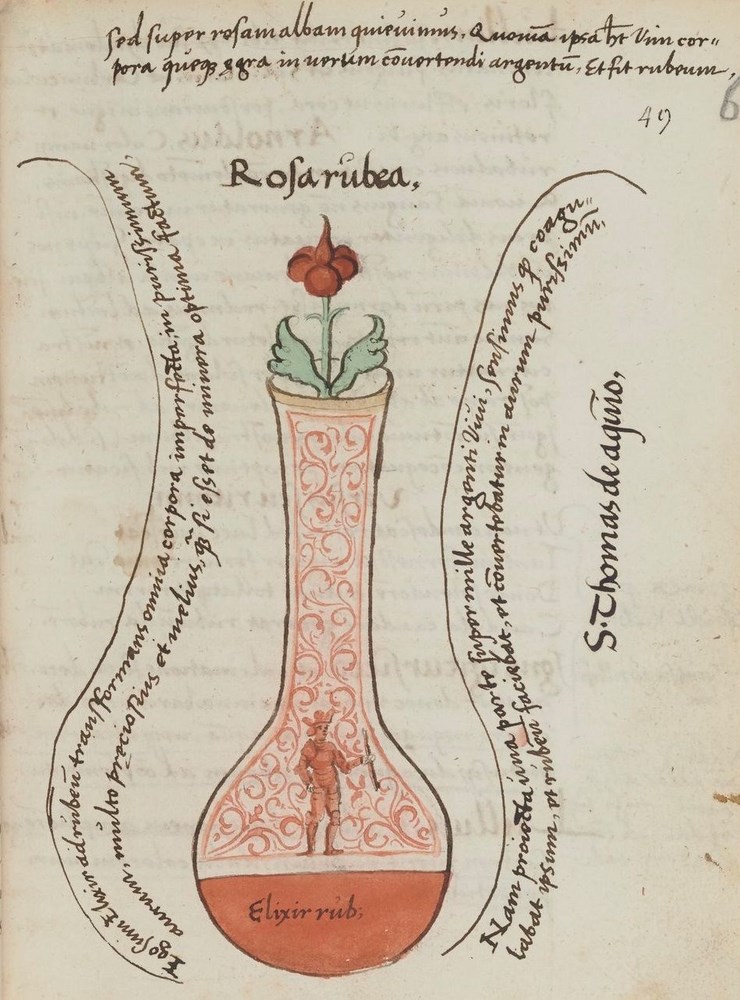 sed super rosam albam quievimus. Quoniā ipsa ht vim cor=
pora queqȝ ęgra in verum cōvertendi argentū, Et fit rubeum,
49
6
Rosa rŭbea,
Ego sum Elixir ad rŭbeū transformans omnia corpora imperfecta, in purissimum
aurum, mŭlto preciosius et melius, si esset de minera optima factum,
Nam proiecta ŭna parte sŭper mille argenti vivi, sensimus coagu=
labat ipsum, et rŭbeŭ faciebat, et cōvertebatur in aurum purissimū,
S. Thomas de aqŭino,
Elixir rŭb: